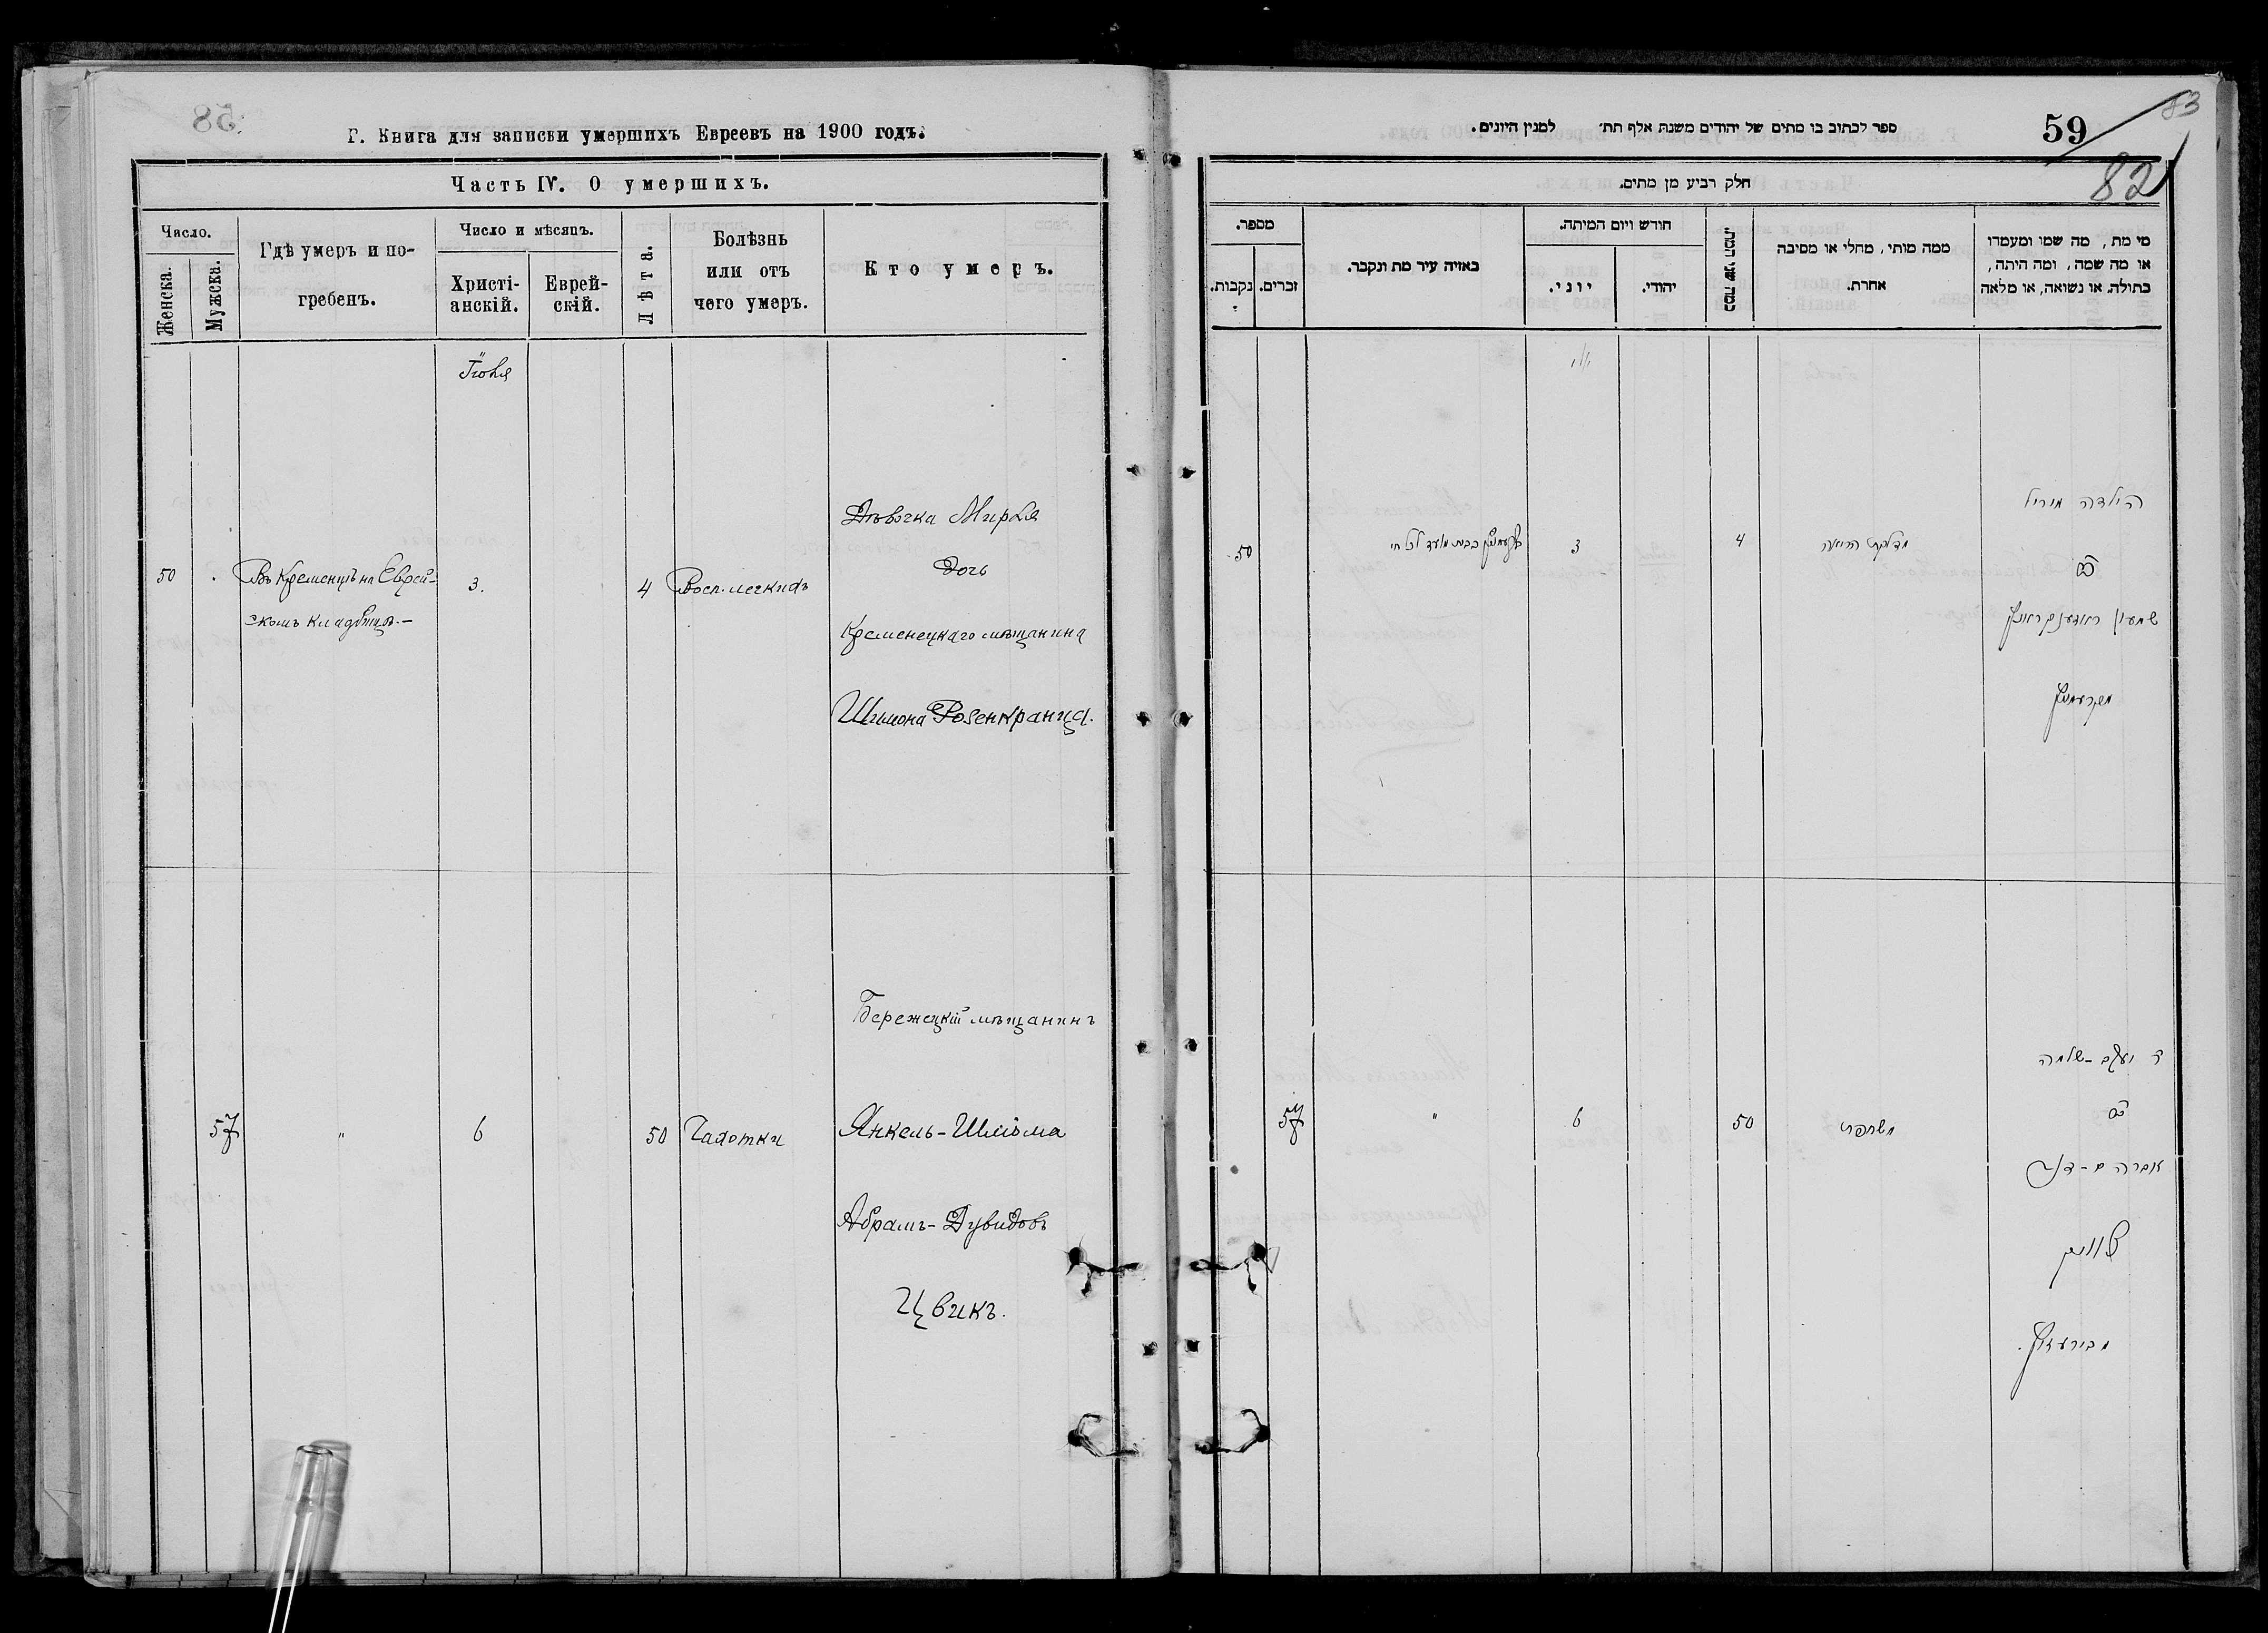 Г. Книга для записки умершихъ Евреевъ на 1900 годъ.
Часть IV. О умершихъ.
Число.
Женска.
Мужска.
Гдѣ умеръ и по-
гребенъ.
Число и мѣсяцъ.
Христі-
анскій.
Еврей-
скій.
Лѣта.
Болѣзнь
или отъ
чего умеръ.
Кто умеръ.
Іюня
50
Въ Кременцѣ на Еврей-
скомъ кладбищѣ.-
3.
4
Восп. легкихъ
Дѣвочка Мирля
дочь
Кременецкаго мѣщанина
Шимона Розенкранца.
57
"
6
50
Чахотки
Бережецкій мѣщанинъ
Янкель-Шлiома
Абрамъ-Дувидовъ
Цвикъ.
83
59
82
ספר לכתוב בו מתים של יהודים משנת אלף תת׳ למנין היונים.
חלק רביע מן מתים.
מספר.
נקבות.
זכרים.
באיזה עיר מת ונקבר.
חודש ויום המיתה.
יוני.
יהודי.
כמה שני המת.
ממה מותי, מחלי או מסיבה
אחרת.
מי מת, מה שמו ומעמדו
או מה שמה, ומה היתה,
בתולה, או נשואה, או מלאה
50
3
4
מדלקת הריאה
הילדה מירל
שמעון ראזענקראנץ
מקרעמניץ
57
"
6
50
משחפת
ר יעקב-שלמה
אברהם-דוד
צוויק